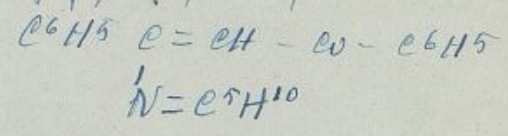 C⁶H⁵ C = CH - CO - C⁶H⁵
N = C⁵H¹⁰